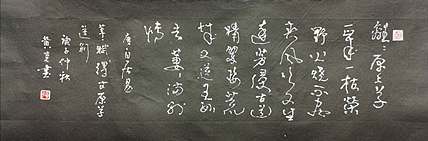 離離原上草
一歲一枯榮
野火燒不盡
春風吹又生
遠芳侵古道
晴翠接荒
城又送王孫
去萋萋滿別
情
唐白居易
草賦得古原草
送別
庚子仲秋
黃
書